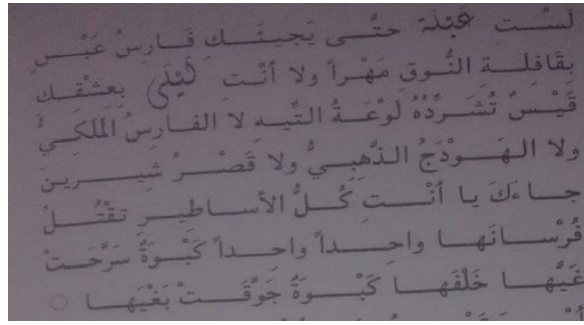 لَسْتِ عَبْلَةَ حتَّى يَجيئَكِ فَارِسُ عَبْسٍ
بِقَافِلَةِ النُّوقِ مَهْراً ولا أنْتِ لَيْلَى بِعشْقِكِ
قَيْسٌ تُشَرِّدُهُ لَوْعَةُ التِّيهِ لا الفارِسُ المَلَكيُّ
ولا الهَوْدَجُ الذَّهبِيُّ ولا قَصْرُ شِيرينَ
جاءَكَ يا أنْتِ كُلُّ الأساطيرِ تقْتُلُ
فُرْسانَها واحِداً واحِداً كَبْوَةٌ سَرَّحَتْ
غَيَّها خَلْفَها كَبْوَةٌ جَوَّقَتْ بَغْيَها